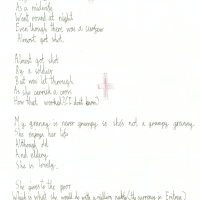 As a midwife
Went round at night
Even though there was a curfew
Almost got shot.
Almost got shot
By a soldier
But was let through
As she carried a cross
How that worked? (I don't know)
My granny is never grumpy so she's not a grumpy granny.
She enjoys her life
Although old
And elderly.
She is lovely.
She gives to the poor
What is what she would do with a million nakfa (the currency in Eritrea)